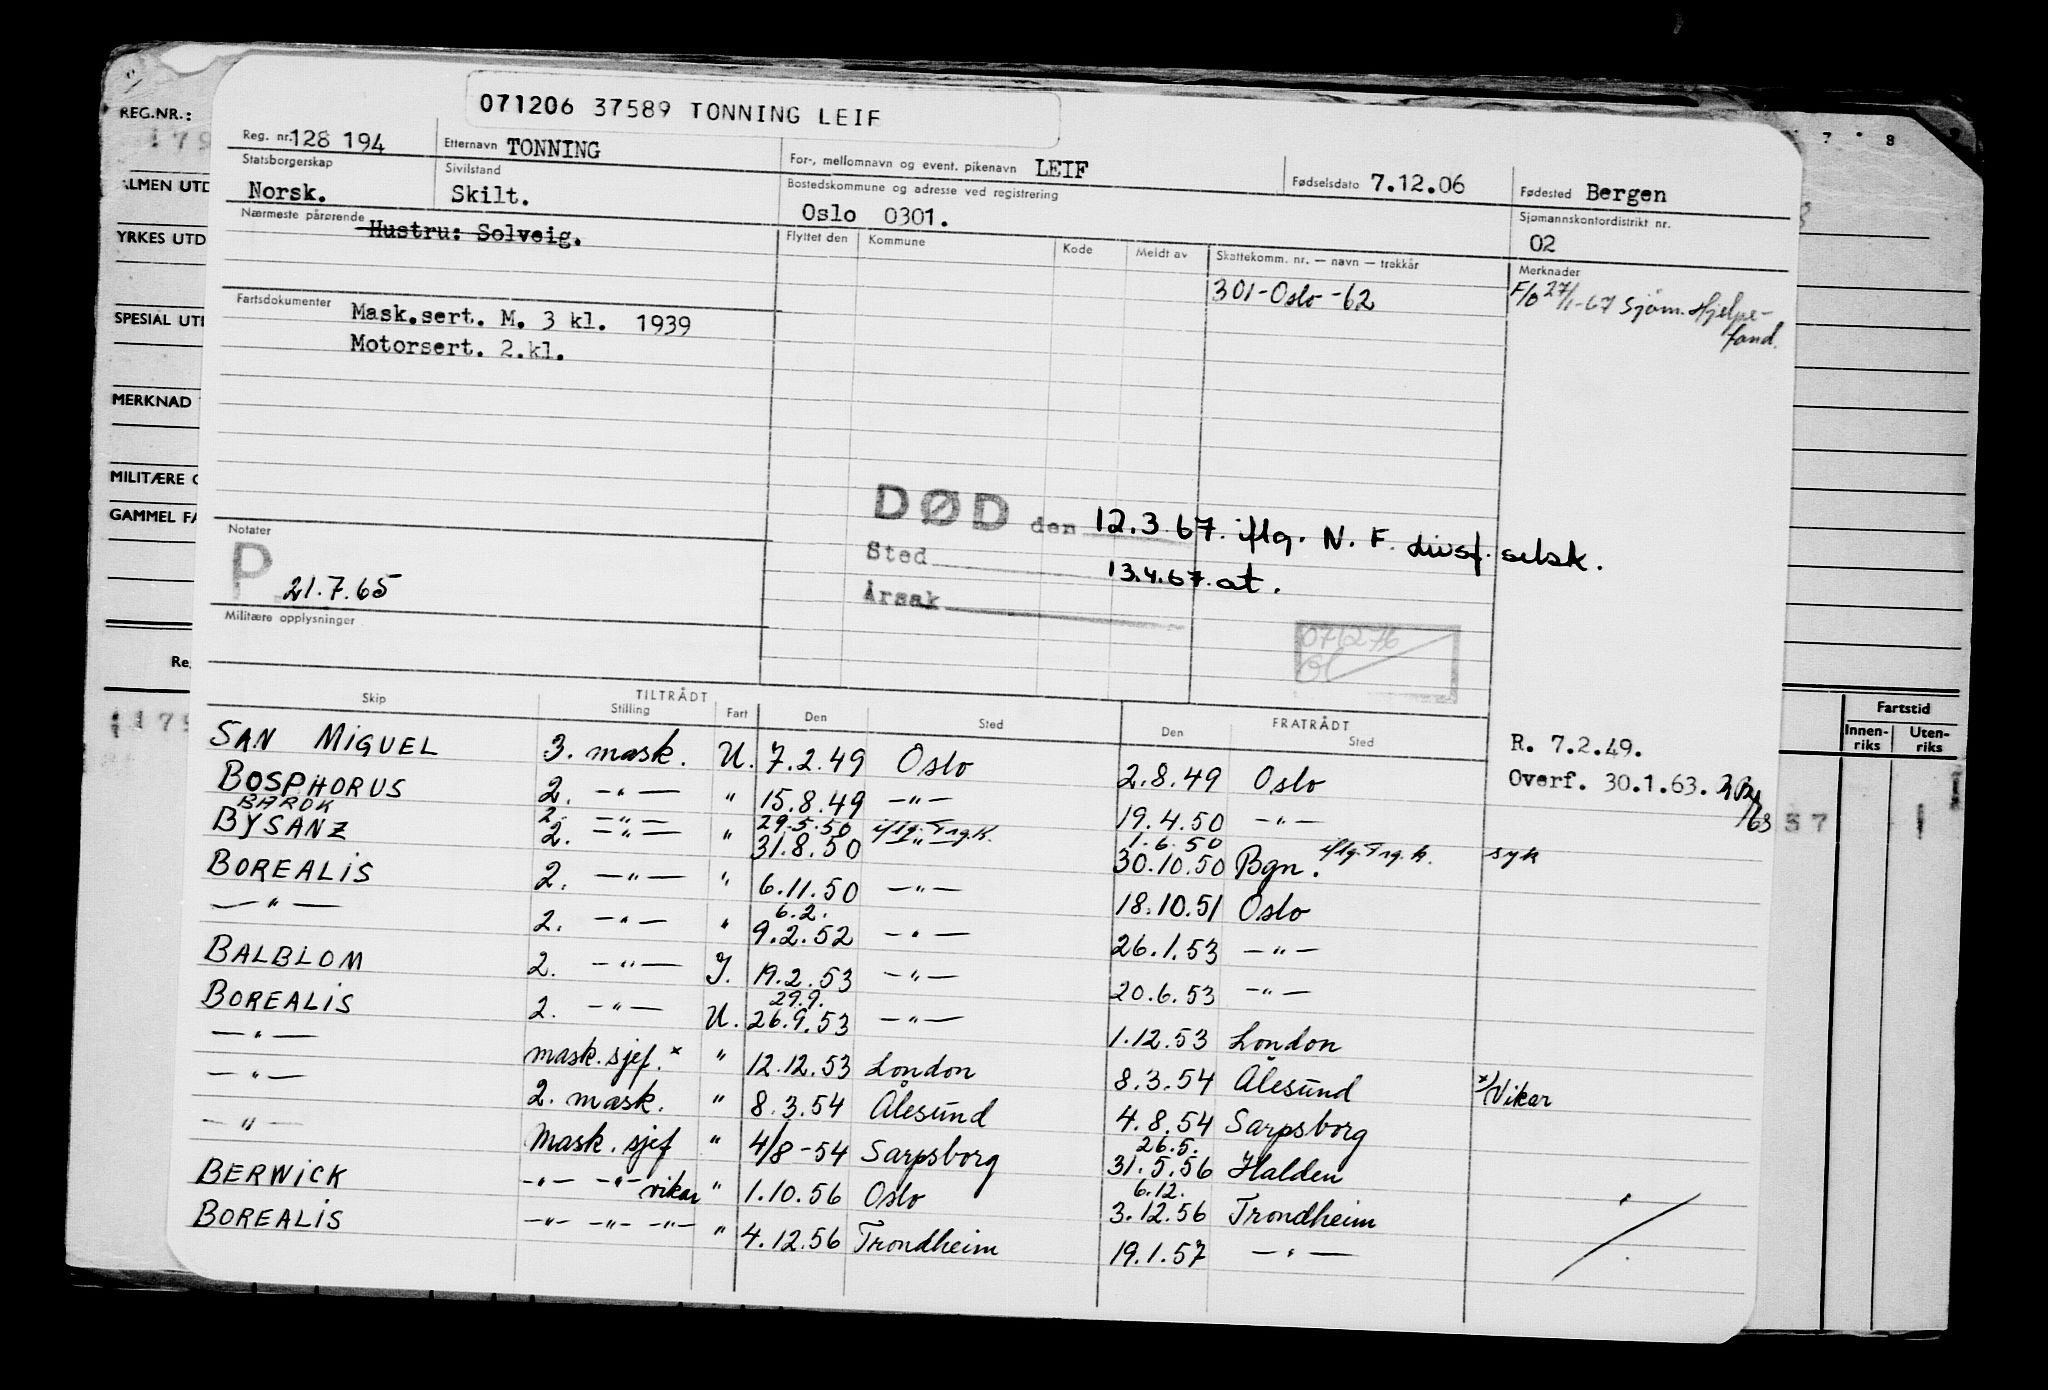 071206 37589 TONNING LEIF
REG.NR.:
Reg. nr. 128 194 Etternavn TONNING For-, mellomnavn og event. pikenavn LEIF Fødselsdato 7.12.06 Fødested Bergen
7 8
Statsborgerskap Norsk. Sivilstand Skilt. Bostedskommune og adresse ved registrering Oslo 0301. Sjømannskontordistrikt nr. 02
ALMEN UTD
Nærmeste pårørende Hustru: Solveig. Flyttet den Kommune Kode Meldt av Skattekomm. nr. — navn — trekkår Merknader
YRKES UTD
301-Oslo-62 F/b 27/1-67 Sjøm. Hjelpe-
fond.
Fartsdokumenter Mask.sert. M. 3 kl. 1939
Motorsert. 2.kl.
SPESIAL UTI
MERKNAD
MILITÆRE
GAMMEL FA
DØD den 12.3.67. iflg. N. F. livsf. selsk.
Sted 13.4.67. at.
Årsak
Notater
P 21.7.65
Militære opplysninger
071276
Skip TILTRÅDT Stilling Fart Den Sted FRATRÅDT Den Sted
Fartstid
Innen-riks Uten-riks
R. 7.2.49.
Overf. 30.1.63.
SAN MIGUEL 3. mask. U. 7.2.49 Oslo 2.8.49 Oslo
BOSPHORUS 2. -"- " 15.8.49 -"- 19.4.50 -"-
BAROK 2. -"- 29.5.50 iflg. Trg.k. 1.6.50 iflg. Trg.k. syk
BYSANZ 2. -"- " 31.8.50 -"- 30.10.50 Bgn.
BOREALIS 2. -"- " 6.11.50 -"- 18.10.51 Oslo
6.2.
-"- 2. -"- " 9.2.52 -"- 26.1.53 -"-
BALBLOM 2. -"- I. 19.2.53 -"- 20.6.53 -"-
29.9.
BOREALIS 2. -"- U. 26.9.53 -"- 1.12.53 London
-"- mask. sjef. x " 12.12.53 London 8.3.54 Ålesund x/Vikar
-"- 2. mask. " 8.3.54 Ålesund 4.8.54 Sarpsborg
26.5.
-"- Mask. sjef " 4/8-54 Sarpsborg 31.5.56 Halden
6.12.
BERWICK -"- -"- vikar " 1.10.56 Oslo 3.12.56 Trondheim
BOREALIS -"- -"- -"- " 4.12.56 Trondheim 19.1.57 -"-